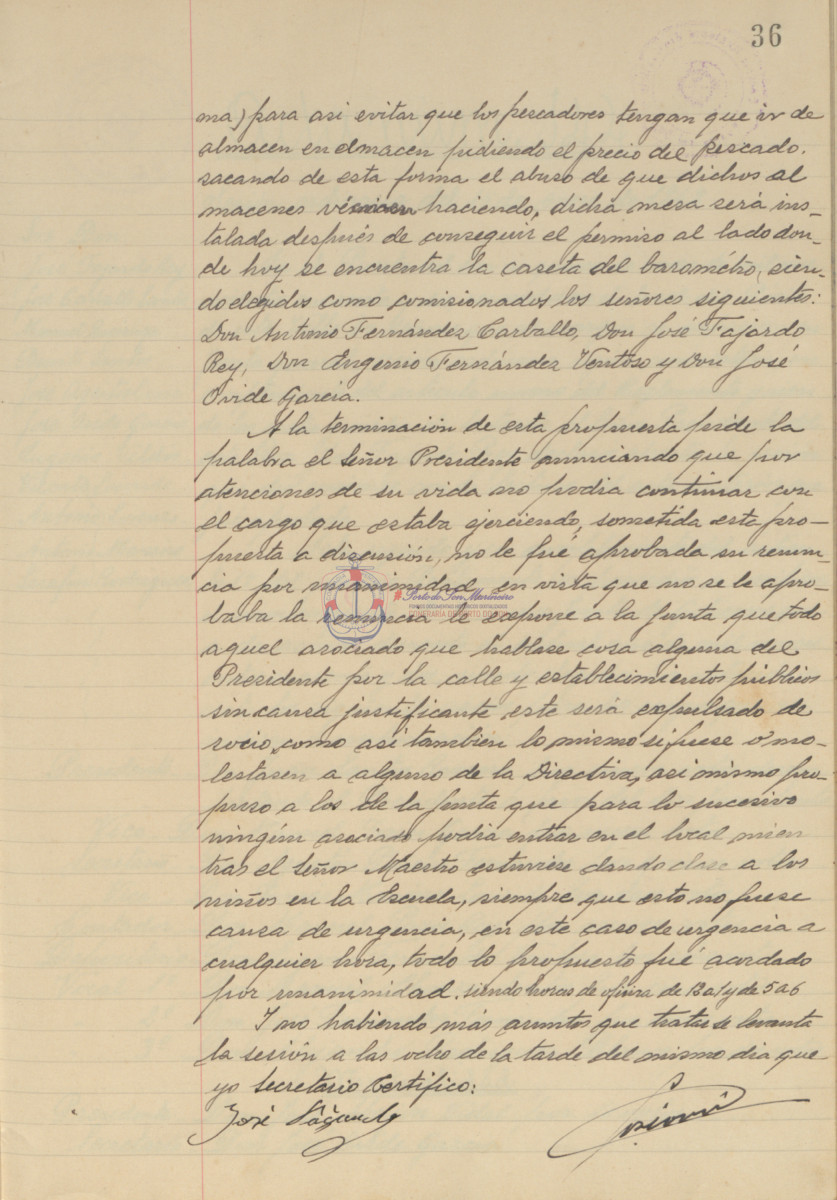 36
ma) para asi evitar que los pescadores tengan que ir de
almacen en almacen pidiendo el precio del pescado.
sacando de esta forma el abuso de que dichos al
macenes haciendo, dicha mesa será ins-
talada después de conseguir el permiso al lado don-
de hoy se encuentra la caseta del barométro, sien-
do elegidos como comisionados los señores siguientes:
Don Antonio Fernández Carballo, Don José Fajardo
Rey, Don Eugenio Fernández Ventoso y Don José
Ovide Garcia.
A la terminación de esta propuesta pide la
palabra el Señor Presidente anunciando que por
atenciones de su vida no podia continuar con
el cargo que estaba ejerciendo, sometida esta pro-
puesta a discusión, no le fué aprobada su renun-
cia por unanimidad, en vista que no se le apro-
baba la renuncia le expone a la junta que todo
aquel asociado que hablase cosa alguna del
Presidente por la calle y establecimientos públicos
sin causa justificante este será expulsado de
socio, como asi tambien lo mismo si fuese o mo-
lestasen a alguno de la Directiva, asi mismo pro-
puso a los de la junta que para lo sucesivo
ningún asociado podia entrar en el local mien
tras el Señor Maestro estuviese dando clase a los
niños en la Escuela, siempre que esto no fuese
causa de urgencia, en este caso de urgencia a
cualquier hora, todo lo propuesto fué acordado
por unanimidad. siendo horas de oficina de 12 a 1 y de 5 a 6
I no habiendo más asuntos que tratar se levanta
la sesión a las ocho de la tarde del mismo dia que
yo Secretario Certifico:
José